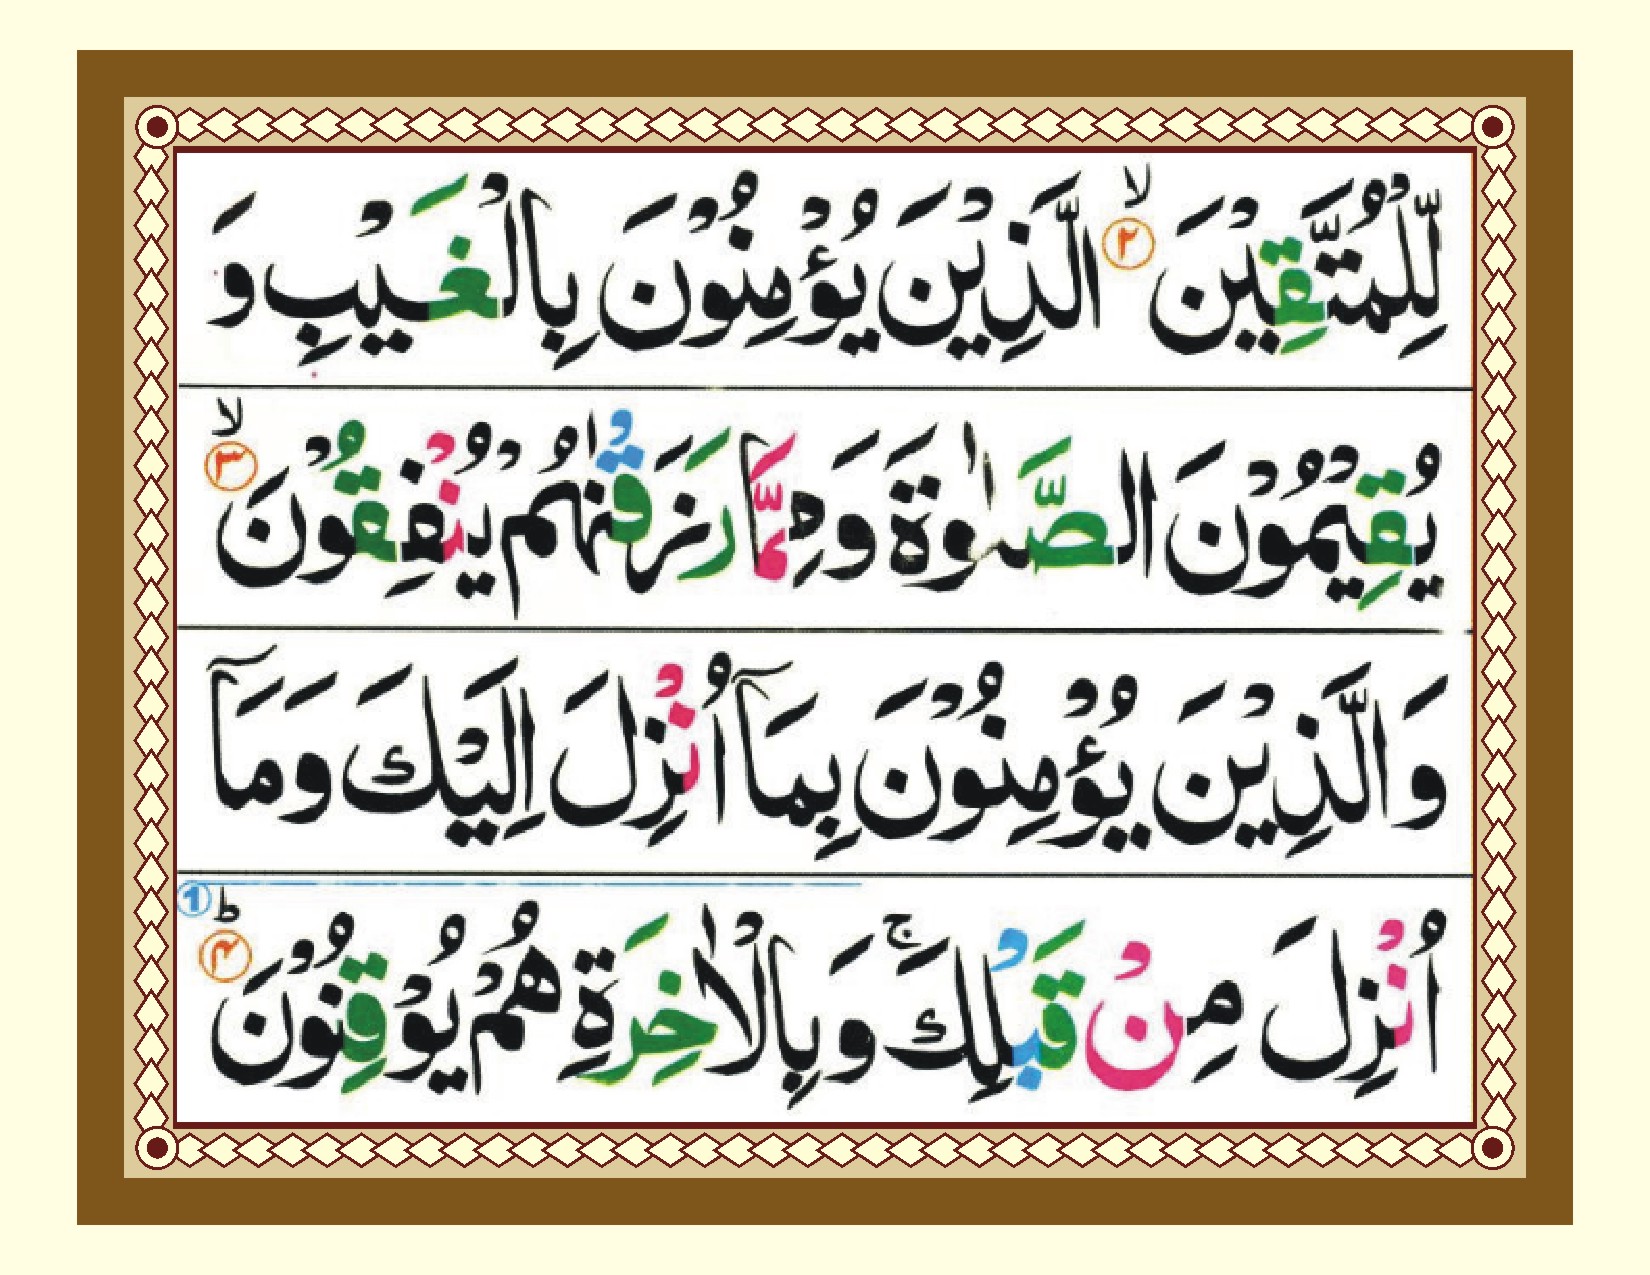 لِّلْمُتَّقِيْنَ ۙ ﴿۲﴾ الَّذِيْنَ يُؤْمِنُوْنَ بِالْغَيْبِ وَ
يُقِيْمُوْنَ الصَّلٰوةَ وَمِمَّا رَزَقْنٰهُمْ يُنْفِقُوْنَ ۙ ﴿۳﴾
وَالَّذِيْنَ يُؤْمِنُوْنَ بِمَآ اُنْزِلَ اِلَيْكَ وَمَآ
اُنْزِلَ مِنْ قَبْلِكَ ۚ وَبِالْاٰخِرَةِ هُمْ يُوْقِنُوْنَ ؕ ﴿۴﴾ ①